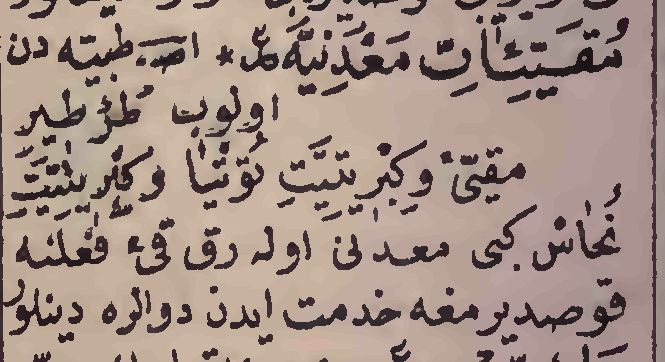 مُقَيِّئَاتِ مَعْدَنِيَّه * اصـ طبيه دن
اولوب طرطير
مقيّئ وكِبْرِيتِيَّتِ تُوتْيَا وكِبْرِيتِيَّتِ
نُحَاس كبى معدنى اوله رق قىء فعلنه
قوصديرمغه خدمت ايدن دوالره دينلور